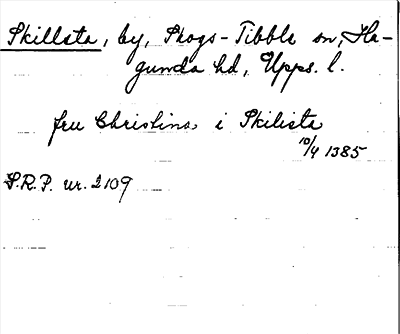 Skillsta, by, Skogs-Tibble sn, Ha-
gunda hd, Upps. l.
fru Christina i Skilista
10/4 1385
S.R.P. nr. 2109